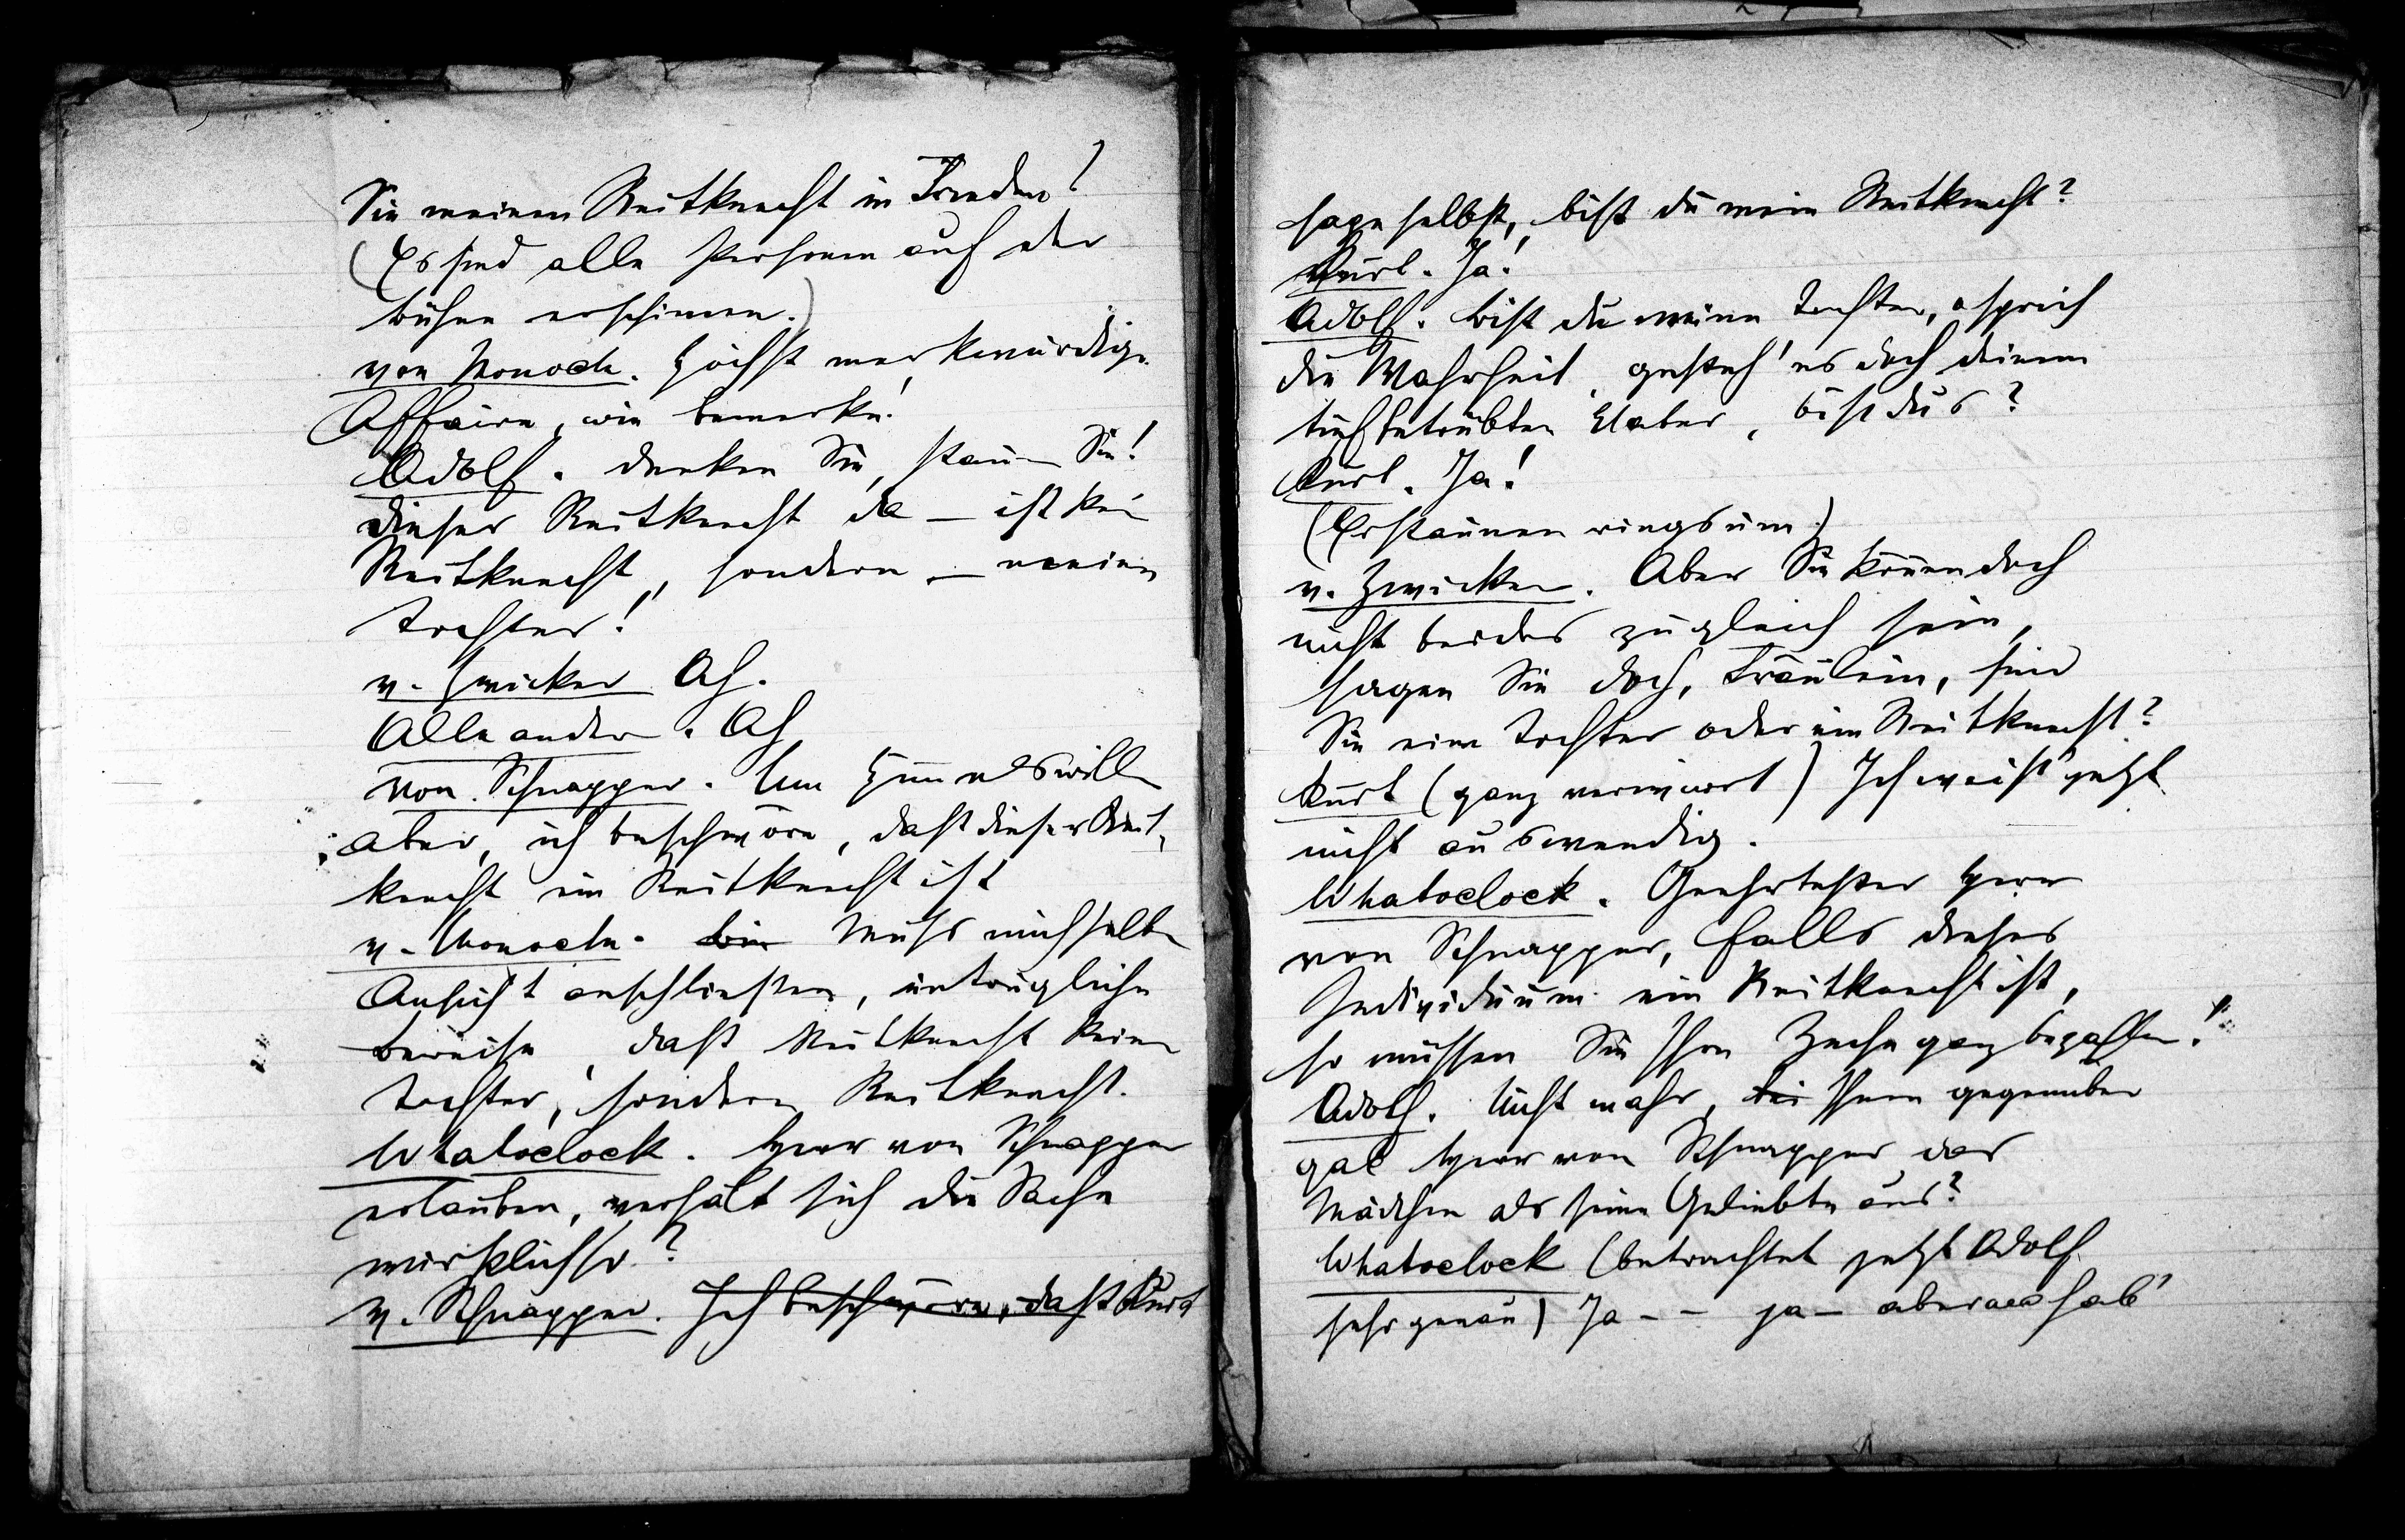 Sie meinen Reitknecht in Frieden!
(Es sind alle Personen auf der
Bühne erschienen.)
von Monocle. Höchst merkwürdige
Affaire, wie bemerke!
Adolf. Denken Sie, staunen Sie!
dieser Reitknecht da – ist kein
Reitknecht, sondern – meine
Tochter!
v. Zwicker Ah.
Alle andern. Ah
von Schnapper. Um Himmelswillen
aber, ich beschwöre, daß dieser Reit-
knecht ein Reitknecht ist
v. Monocle. Bin Muss mich selber
Ansicht anschließen, untrügliche
Beweise, daß Reitknecht keine
Tochter, sondern Reitknecht.
Whatoclock. Herr von Schnapper
erlauben, verhält sich die Sache
wirklich so?
v. Schnapper. Ich beschwöre, daß Kurt
sage selbst, bist du mein Reitknecht?
Kurt. Ja!
Adolf. Bist du meine Tochter, o sprich
die Wahrheit, gesteh' es doch deinem
tiefbetrübten Vater, bist du's?
Kurt. Ja!
(Erstaunen ringsum)
v. Zwicker. Aber Sie können doch
nicht beides zugleich sein,
sagen Sie doch, Fräulein, sind
Sie eine Tochter oder ein Reitknecht?
Kurt (ganz verwirrt) Ich weiß jetzt
nicht auswendig.
Whatoclock. Geehrtester Herr
von Schnapper, falls dieses
Individuum ein Reitknecht ist,
so müssen Sie Ihre Zeche ganz bezahlen!
Adolf. Nicht wahr, bei Ihnen gegenüber
gab Herr von Schnapper das
Mädchen als seine Geliebte aus?
Whatoclock (betrachtet jetzt Adolf
sehr genau) Ja – – ja – aber hab'